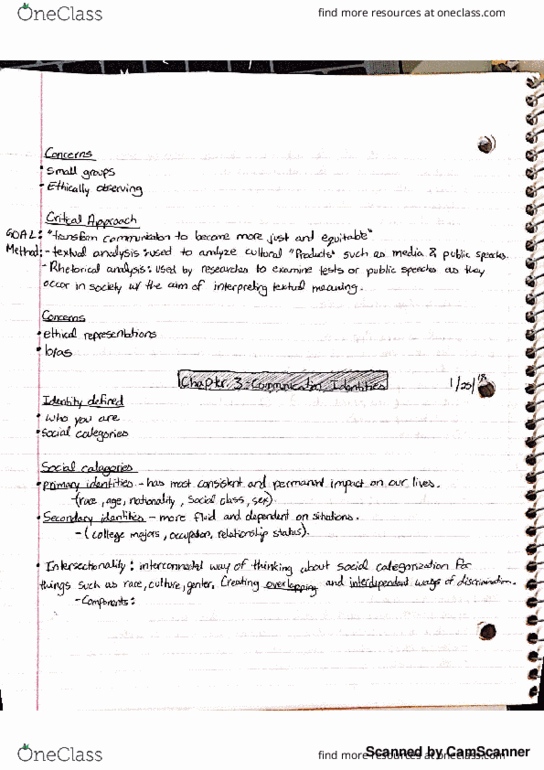 OneClass
find more resources at oneclass.com
Concerns
• Small groups
• Ethically observing
Critical Approach
GOAL: "transform communication to become more just and equitable"
Method: - textual analysis: used to analyze cultural "Products" such as media & public speechs.
- Rhetorical analysis: used by researches to examine texts or public speeches as they
occur in society w/ the aim of interpreting textual meaning.
Concerns
• ethical representations
• bias
Chapter 3: Communication Identities 1/25/18
Identity defined
• who you are
• Social categories
Social catagories
• primary identities - has most consistent and permanant impact on our lives.
-(race, age, nationality, social class, sex).
• Secondary identities - more fluid and dependent on sitations.
- (college majors, occupation, relationship status).
• Intersectionality: interconnected way of thinking about social categorization for
things such as race, culture, gender. Creating overlapping and interdependent ways of discrimination.
- Components:
OneClass
find more resources at oneclass.com
Scanned by CamScanner